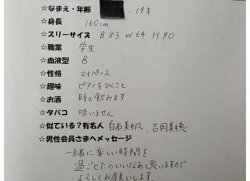 ☆なまえ・年齢 19才
☆身長 160cm
☆スリーサイズ B 83 W 64 H 90
☆職業 学生
☆血液型 B
☆性格 マイペース
☆趣味 ピアノをひくこと
☆お酒 時々飲みます
☆タバコ 吸いません
☆似ている?有名人 白石美帆、吉岡美穂
☆男性会員さまへメッセージ
一緒に楽しい時間を
過ごせたらいいなあと思いますので
よろしくお願いします。